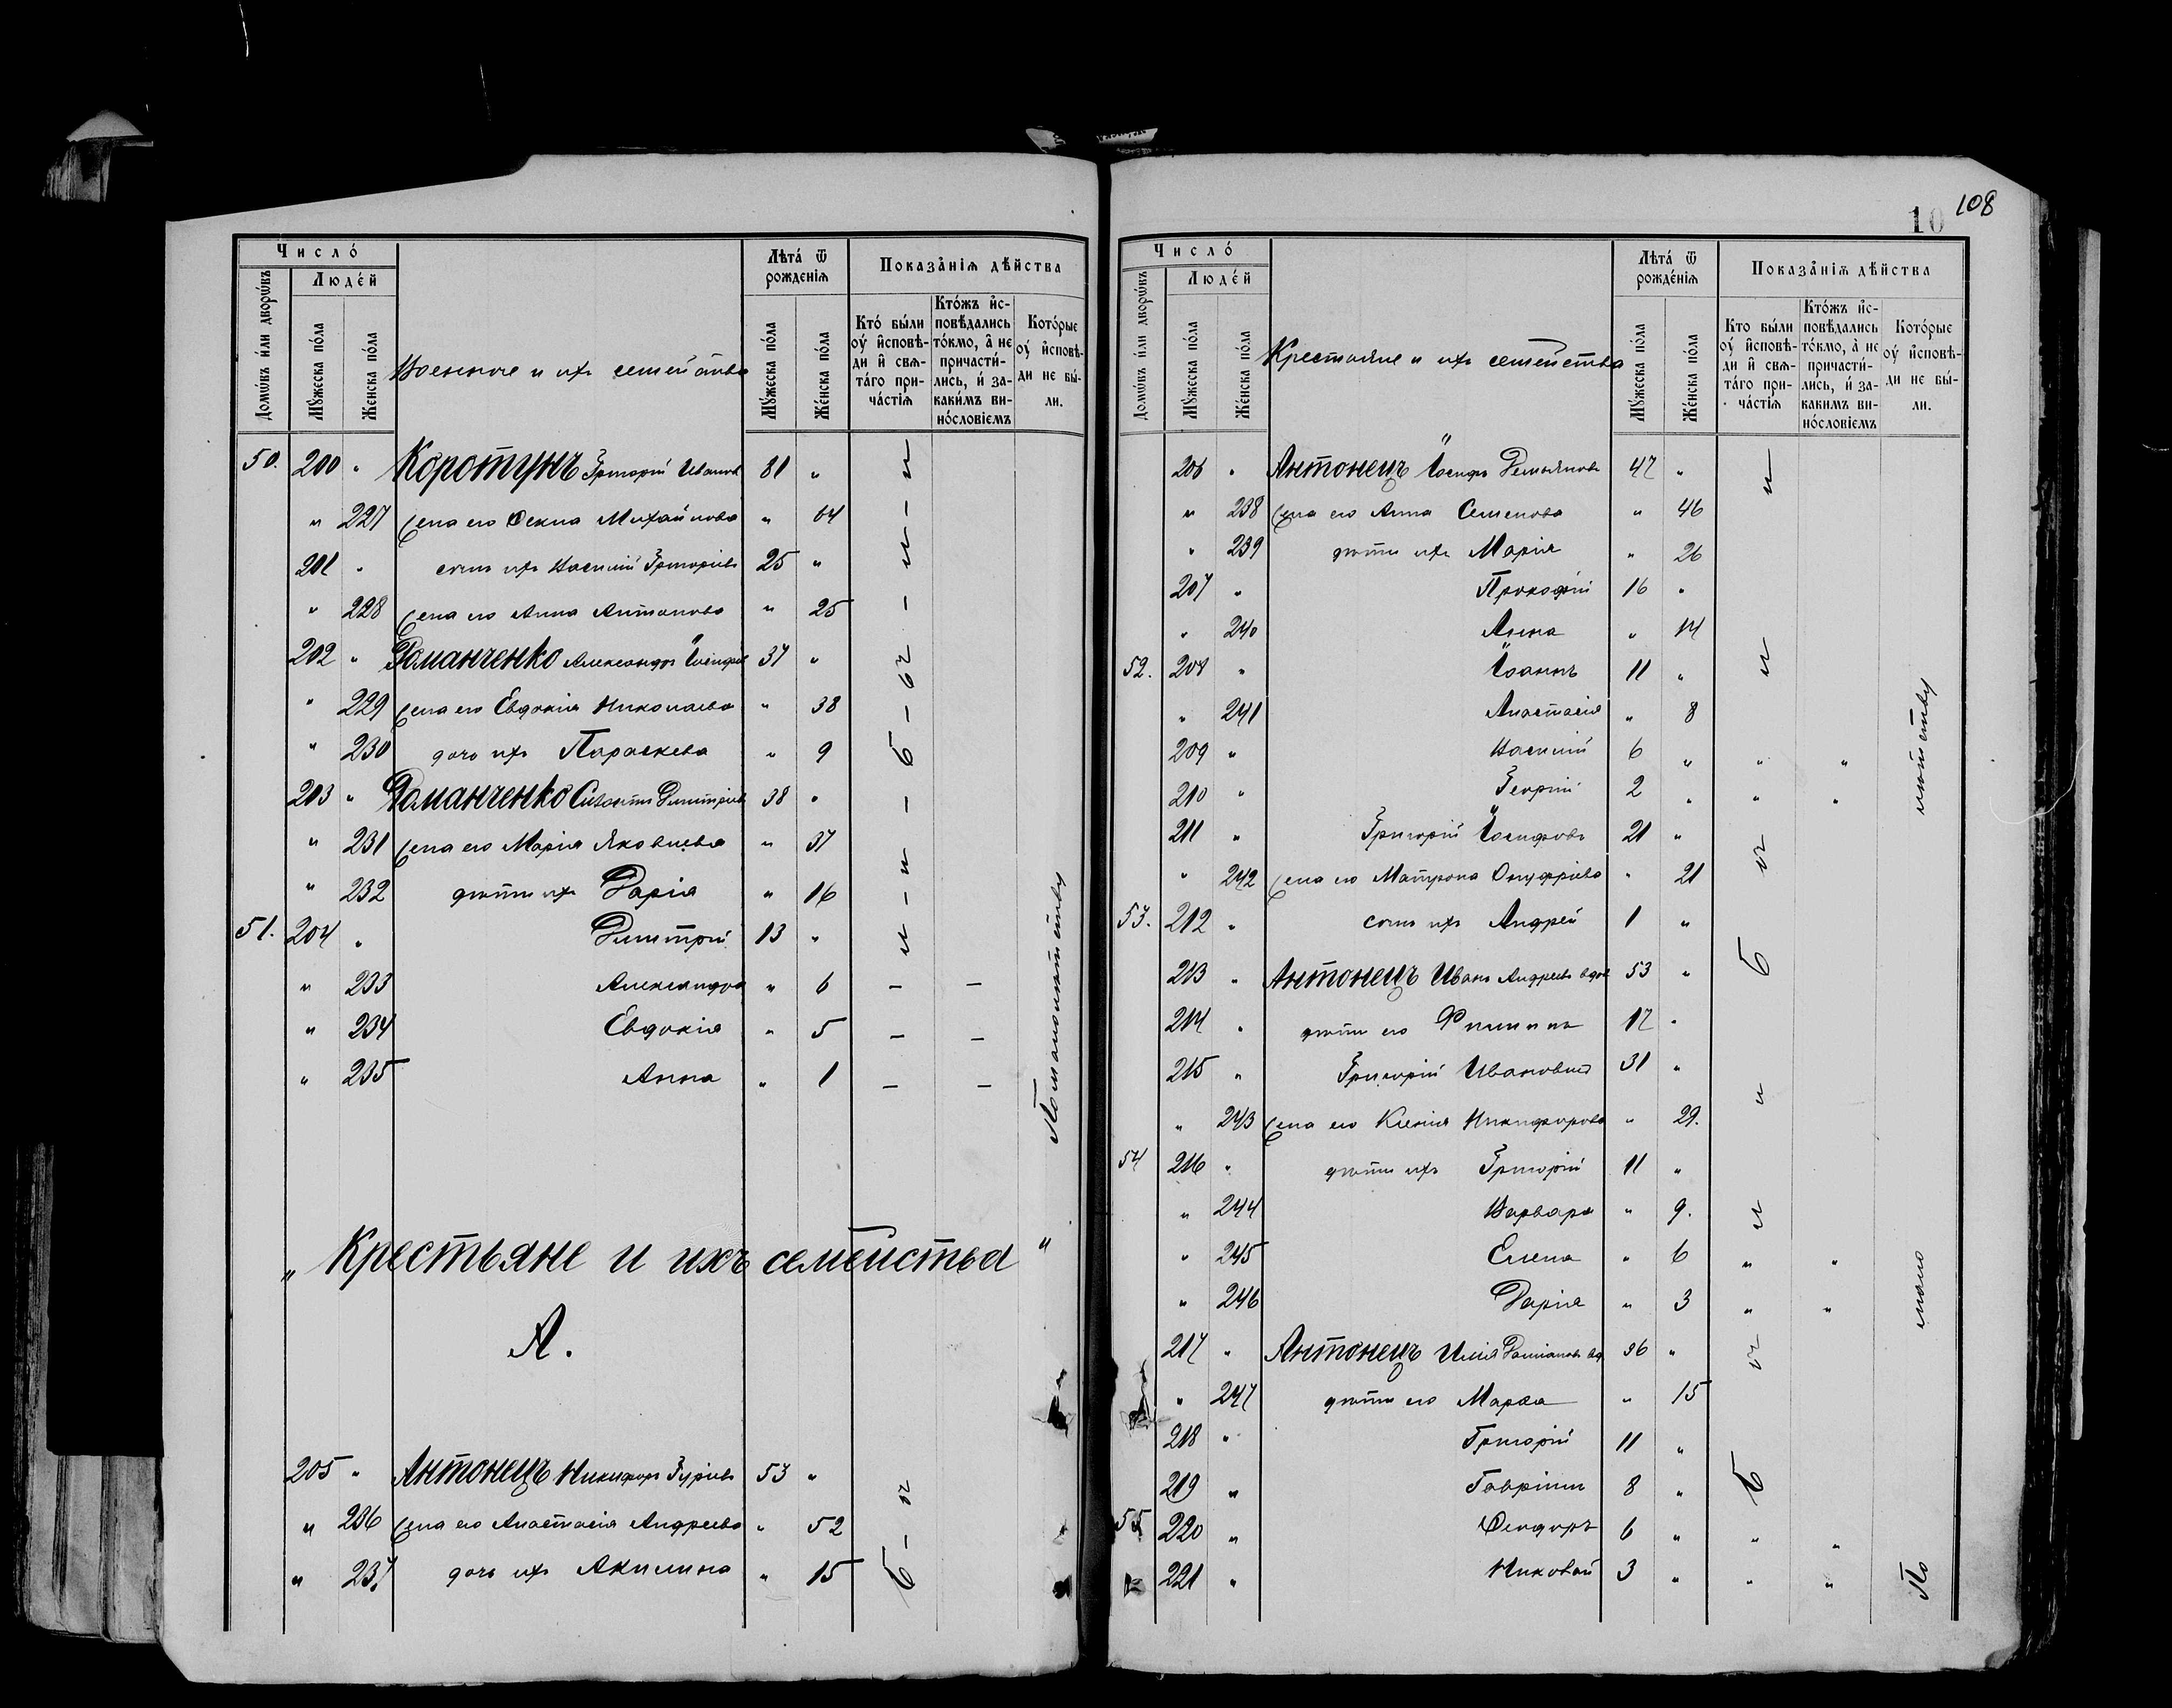 Число́
Люде́й
Домѡ́въ и́ли дворѡ́въ
Мꙋ́жеска по́ла
Же́нска по́ла
Военные и ихъ семейства
Лѣта́ ѿ рожденїѧ
Мꙋ́жеска по́ла
Же́нска по́ла
Показа̑нїѧ дѣ́йства
Кто́ бы́ли оу҆ и҆сповѣ́ди и҆ свѧта́го прича́стїѧ
Кто́жъ и҆сповѣ́дались то́кмо, а҆ не причасти́лись, и҆ за каки́мъ вино́словїемъ
Кото́рые оу҆ и҆сповѣ́ди не бы́ли.
50. 200 " Коротунъ Григорій Иванов 81 "
" 227 Жена его Фекла Михайлова " 64
201 " сынъ ихъ Василій Григоріевъ 25 "
" 228 Жена его Анна Антонова " 25
202 " Романченко Александръ Іосифов 37 "
" 229 Жена его Евдокія Николаева " 38
" 230 дочь ихъ Параскева " 9
203 " Романченко Димитріевъ 38 "
" 231 Жена его Марія Яковлева " 37
" 232 дѣти ихъ Дарія " 16
51. 204 " Димитрій 13 "
" 233 Александра " 6 — —
" 234 Евдокія " 5 — —
" 235 Анна " 1 — —
были
По малолѣтству
„ Крестьяне и ихъ семейства "
А.
205 " Антонецъ Никифоръ Гуріевъ 53 "
" 236 Жена его Анастасія Андреева " 52
" 237 дочь ихъ Акилина " 15
10 108
Число́
Люде́й
Домѡ́въ и́ли дворѡ́въ
Мꙋ́жеска по́ла
Же́нска по́ла
Крестьяне и ихъ семейства
Лѣта́ ѿ рожде́нїѧ
Мꙋ́жеска по́ла
Же́нска по́ла
Показа̑нїѧ дѣ́йства
Кто бы́ли оу҆ и҆сповѣ́ди и҆ свѧта́го прича́стїѧ
Кто́жъ и҆сповѣ́дались то́кмо, а҆ не причасти́лись, и҆ за каки́мъ вино́словїемъ
Кото́рые оу҆ и҆сповѣ́ди не бы́ли.
206 " Антонецъ Іосифъ Демьяновъ 47 "
" 238 Жена его Анна Семенова " 46
" 239 дѣти ихъ Марія " 26
207 " Прокофій 16 "
" 240 Анна " 14
52. 208 " Іоаннъ 11 "
" 241 Анастасія " 8
209 " Василій 6 " " "
210 " Георгій 2 " " "
211 " Григорій Іосифовъ 21 "
" 242 Жена его Матрона Онуфріева " 21
53. 212 " сынъ ихъ Андрей 1 "
213 " Антонецъ Иванъ Андреевъ вдов 53 "
214 " дѣти его Филиппъ 17 "
215 " Григорій Ивановъ 31 "
" 243 Жена его Ксенія Никифорова " 29.
54 216 " дѣти ихъ Григорій 11 "
" 244 Варвара " 9.
" 245 Елена " 6 " "
" 246 Дарія " 3 " "
217 " Антонецъ Илія Даміановъ вд 36 "
" 247 дѣти его Марѳа " 15
218 " Григорій 11 "
219 " Гавріилъ 8 "
55 220 " Ѳеодоръ 6 " " "
221 " Николай 3 " " "
были
По мало лѣтству